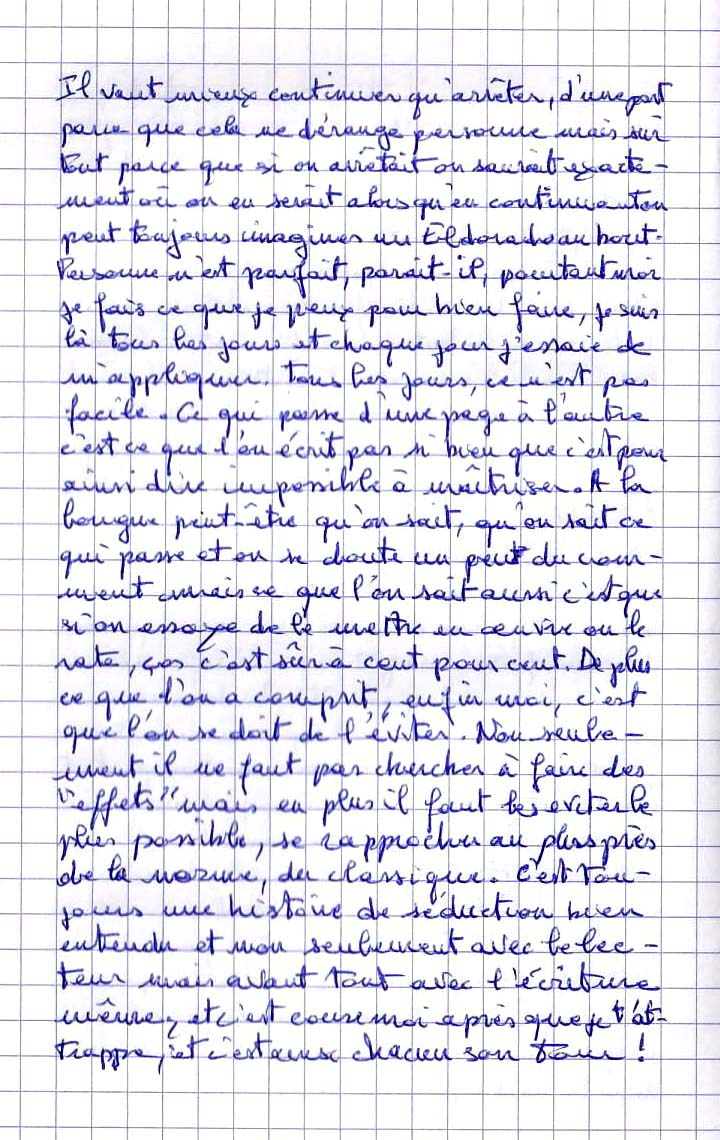 Il vaut mieux continuer qu'arrêter, d'une part
parce que cela ne dérange personne mais sur
tout parce que si on arrêtait on saurait exacte-
ment où on en serait alors qu'en continuant on
peut toujours imaginer un Eldorado au bout.
Personne n'est parfait, parait-il, pourtant moi
je fais ce que je peux pour bien faire, je suis
là tous les jours et chaque jour j'essaie de
m'appliquer. Tous les jours, ce n'est pas
facile. Ce qui passe d'une page à l'autre
c'est ce que l'on écrit pas si bien que c'est pour
ainsi dire impossible à maîtriser. A la
longue peut-être qu'on sait, qu'on sait ce
qui passe et on se doute un peu du com-
ment mais ce que l'on sait aussi c'est que
si on essaye de le mettre en œuvre on le
rate, ça c'est sûr à cent pour cent. De plus
ce que l'on a comprit, enfin moi, c'est
que l'on se doit de l'éviter. Non seule-
ment il ne faut pas chercher à faire des
"effets" mais en plus il faut les eviter le
plus possible, se rapprocher au plus près
de la norme, du classique. C'est tou-
jours une histoire de séduction bien
entendu et non seulement avec le lec-
teur mais avant tout avec l'écriture
même, et c'est cours moi après que je t'at-
trappe, et c'est aussi chacun son tour !